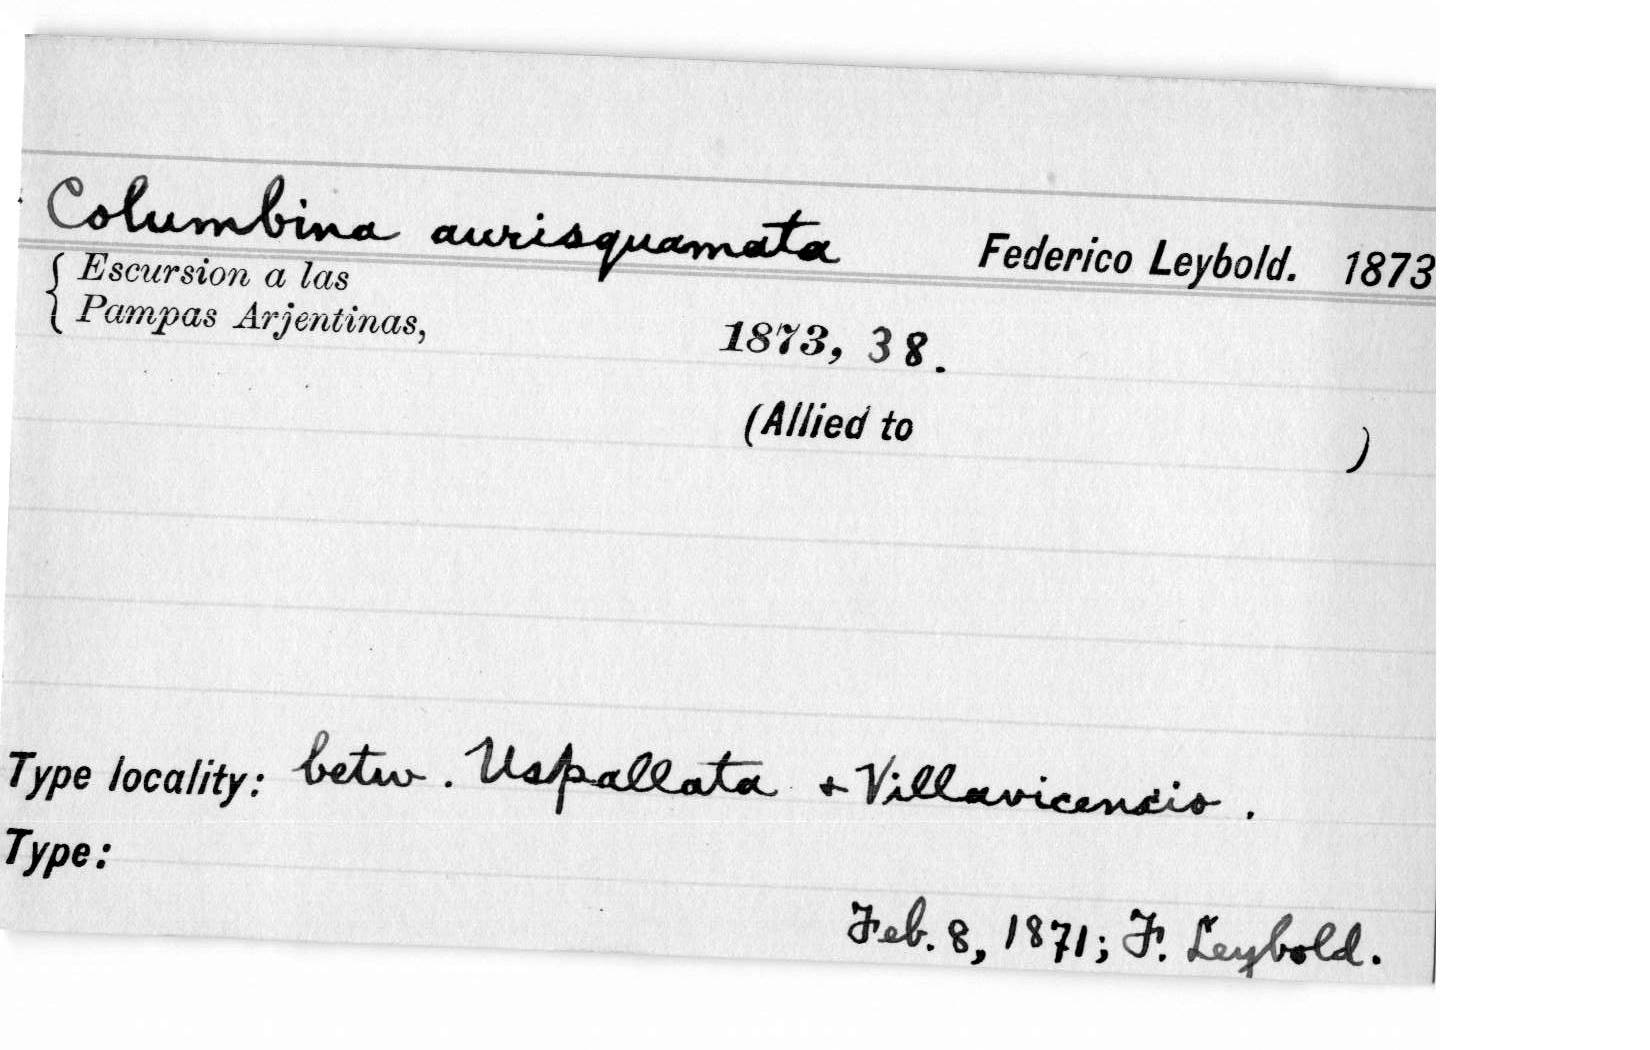 Columbina aurisquamata Federico Leybold. 1873
{ Escursion a las
Pampas Arjentinas,
1873, 38.
(Allied to )
Type locality: betw. Uspallata + Villavicencio.
Type:
Feb. 8, 1871; F. Leybold.